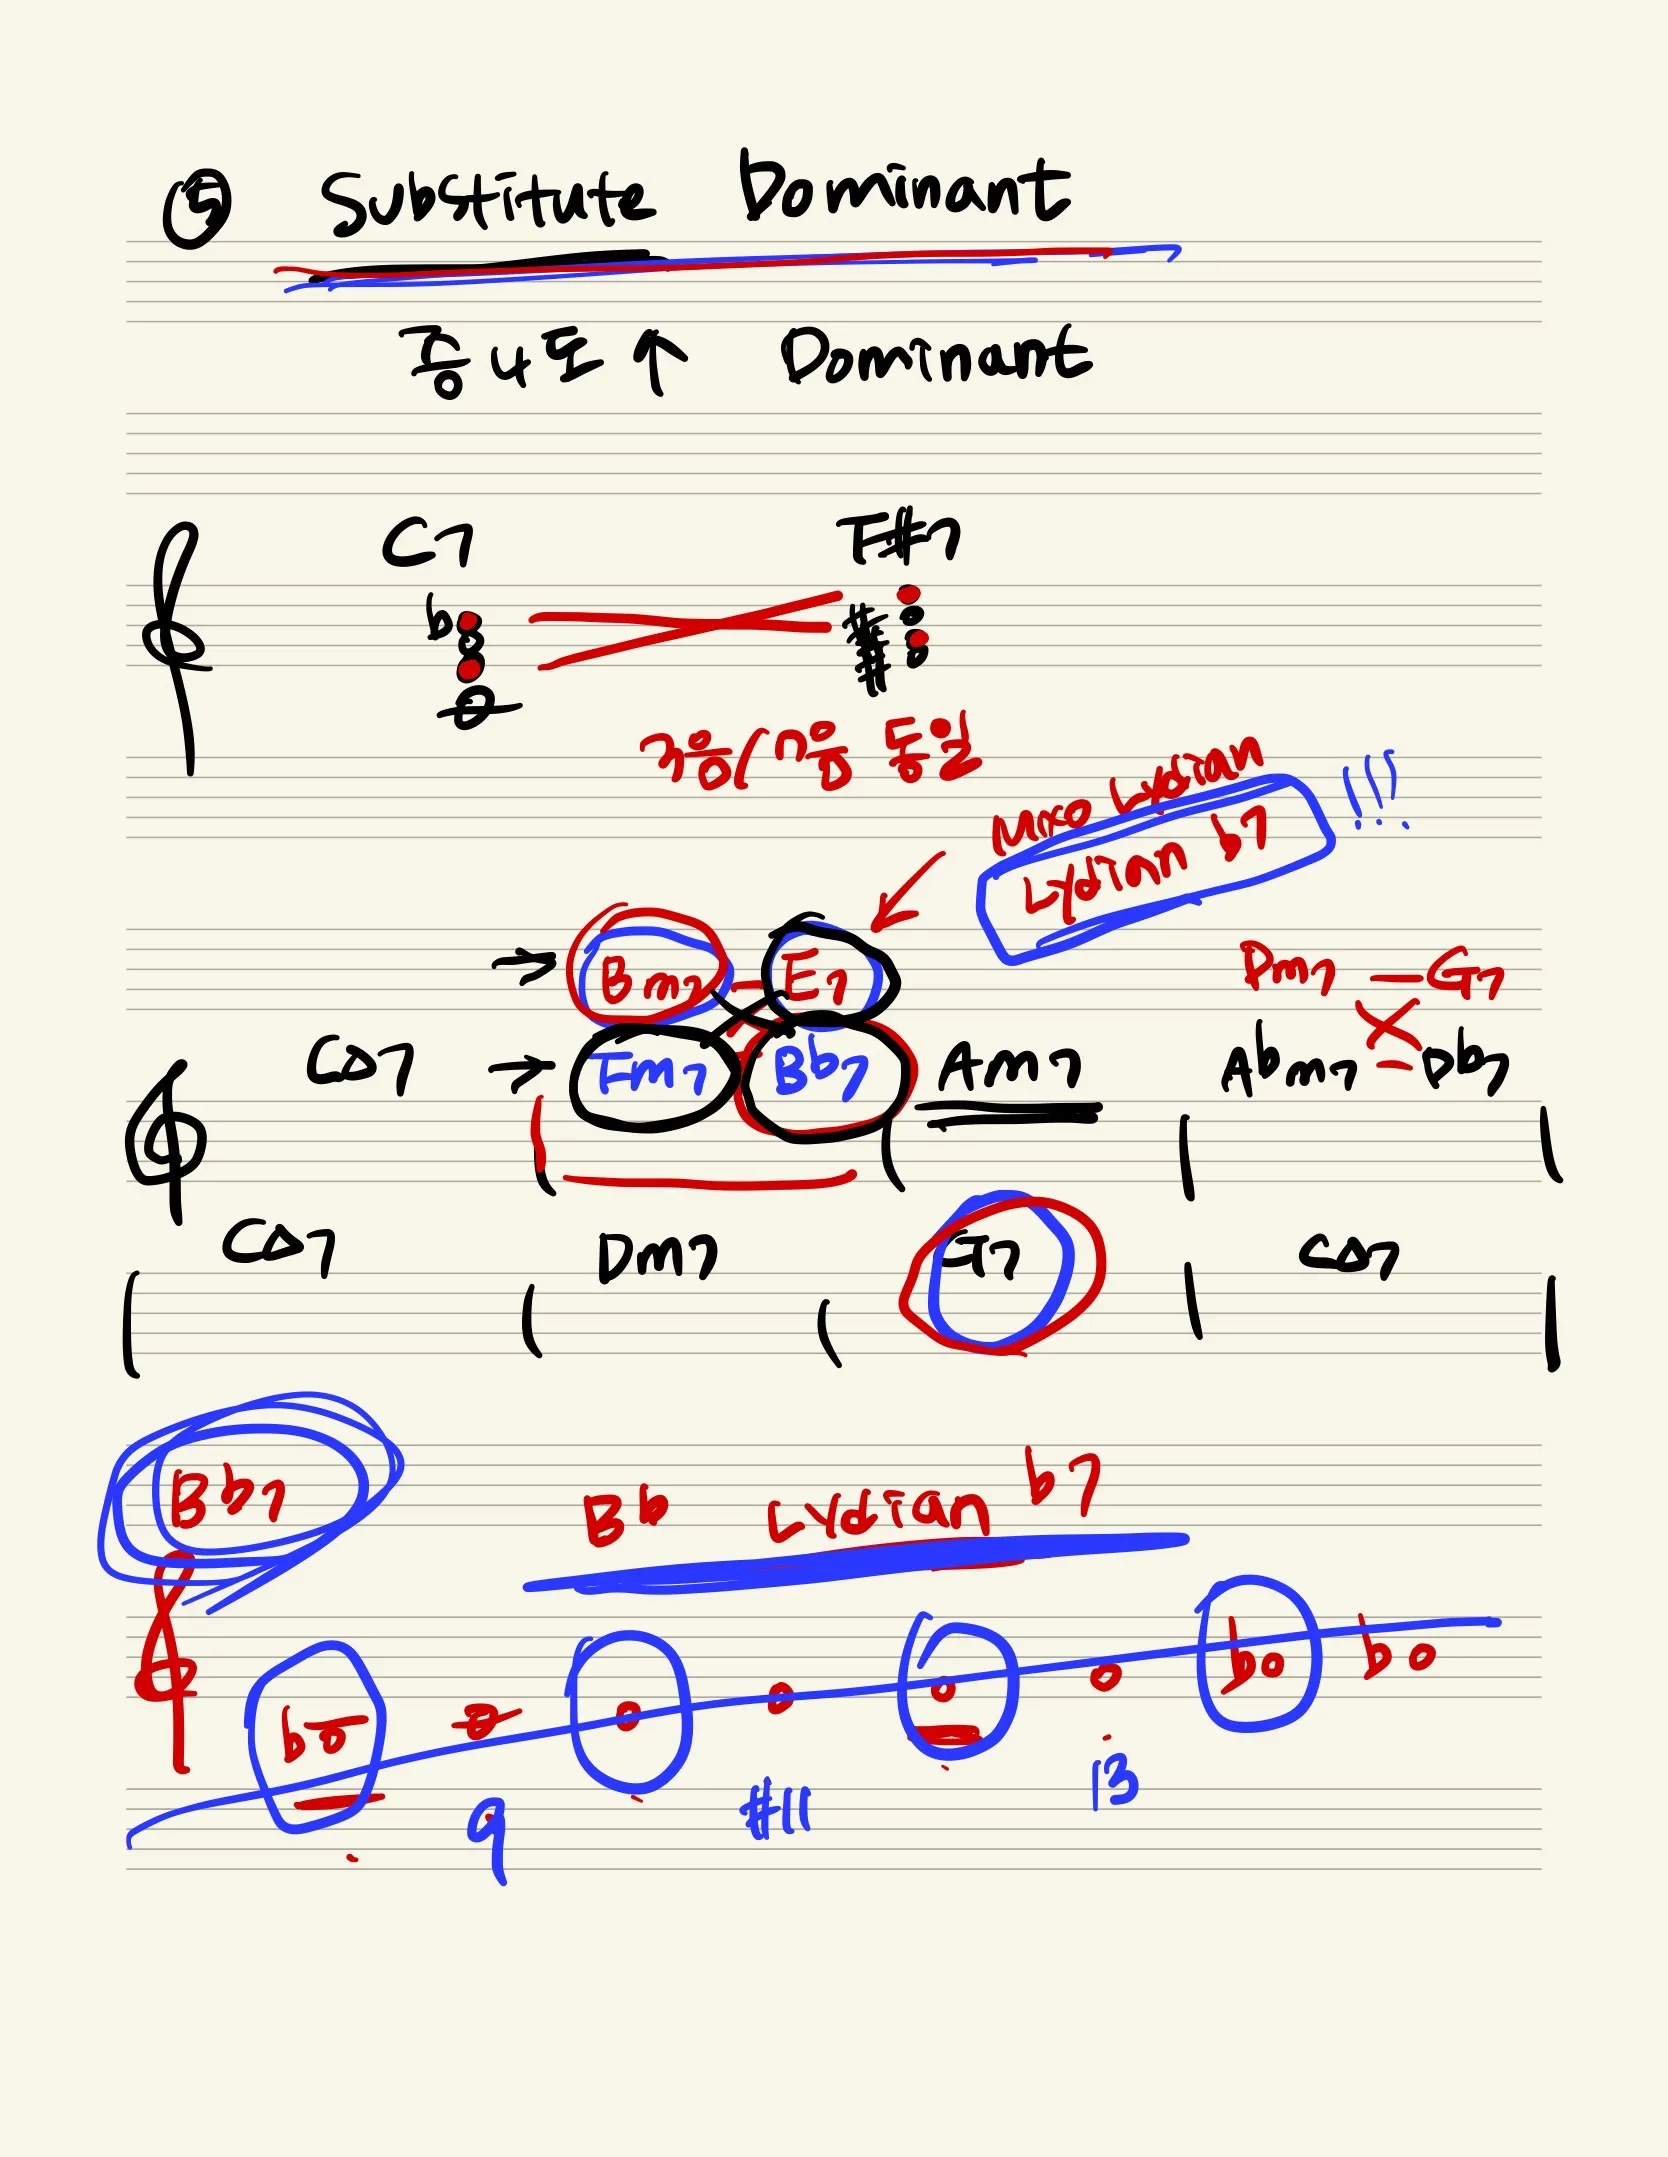 ⑤ Substitute Dominant
증4도↑ Dominant
C7 F#7
3음/7음 동일
Mixo Lydian
Lydian b7 !!!
→ Bm7 - E7 Dm7 - G7
C△7 → Fm7 Bb7 Am7 Abm7 - Db7
C△7 Dm7 G7 C△7
Bb7 Bb Lydian b7
9 #11 13